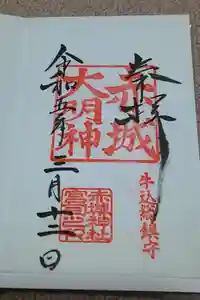 奉拝
赤城
大明神
牛込総鎮守
令和五年三月十二日
赤城神社